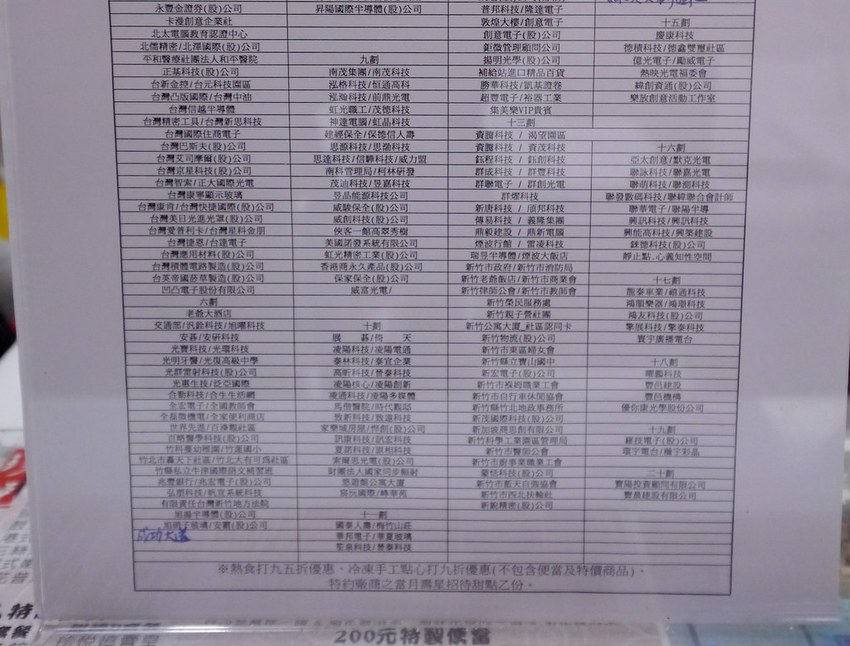 永豐金證券(股)公司
卡漫創意企業社
北大電腦教育認證中心
北儒精密/北擇國際(股)公司
平和醫療社團法人和平醫院
正基科技(股)公司
台新金控/台元科技園區
台灣凸版國際/台灣中油
台灣信越半導體
台灣精密工具/台灣新思科技
台灣國際住商電子
台灣巴斯夫(股)公司
台灣艾司摩爾(股)公司
台灣京星科技(股)公司
台灣智索/正大國際光電
台灣康寧顯示玻璃
台灣康肯/台灣快捷國際(股)公司
台灣美日光進光罩(股)公司
台灣愛普利卡/台灣星科金朋
台灣捷恩/台達電子
台灣應用材料(股)公司
台灣積體電路製造(股)公司
台英帝國菸草製造(股)公司
凹凸電子股份有限公司
六劃
老爺大酒店
交通部/汎銓科技/旭曜科技
安碁/安研科技
光寶科技/光環科技
光明牙醫/光復高級中學
光群雷射科技(股)公司
光惠生技/泛亞國際
合勤科技/合生生活網
全宏電子/全國教師會
世界先進/百祿觀社區
百略醫學科技(股)公司
竹科蔓幼稚園/竹蓮國小
兆豐銀行/兆宏電子(股)公司
有限責任台灣新竹地方法院
旭福半導體(股)公司
成功大道
昇陽國際半導體(股)公司
九劃
南茂集團/南茂科技
泓格科技/恒通高科
泓瀚科技/前鼎光電
虹光職工/茂德科技
神達電腦/虹晶科技
建經保全/保德信人壽
思源科技/思渤科技
思達科技/信驊科技/威力盟
南科管理局/柯林研發
茂訕科技/昱嘉科技
昱品能源科技公司
威駿保全(股)公司
威創科技(股)公司
俠客一館高翠秀樹
美國諾發系統有限公司
虹光精密工業(股)公司
香港商永久產品(股)公司
保家保全(股)公司
威富光電/
十劃
展碁/倚天
凌陽科技/凌陽電通
泰林科技/泰宜企業
高昕科技/晉泰科技
凌陽核心/凌陽創新
凌通科技/凌陽多媒體
馬偕醫院/時代戲邸
致新科技/致遠科技
家樂城房屋/悍創(股)公司
訊康科技/訊宏科技
夏諾科技/原相科技
索爾思光電(股)公司
財團法人國家同步輻射
悠遊館公寓大廈
宸沅國際/峰華苑
十一劃
國泰人壽/梅竹山莊
華邦電子/華夏玻璃
荃象科技/晉泰科技
普邦科技/隆達電子
敦煌大樓/創意電子
創意電子(股)公司
鉅微管理顧問公司
揚明光學(股)公司
補給站進口精品百貨
勝華科技/凱基證券
超豐電子/裕器工業
集美樂VIP貴賓
十三劃
資騰科技 / 渴望園區
資騰科技 / 資茂科技
鈺程科技 / 鈺創科技
群成科技 / 群豐科技
群聯電子 / 群創光電
群熠科技
新唐科技 / 頎邦科技
傳易科技 / 義隆集團
鼎毅建設 / 鼎新電腦
煙波行館 / 雷凌科技
瑞昱半導體/煙波大飯店
新竹市政府/新竹市消防局
新竹老爺飯店/新竹市商業會
新竹律師公會/新竹市教師會
新竹榮民服務處
新竹親子營社團
新竹公寓大廈_社區認同卡
新竹物流(股)公司
新竹市東區婦女會
新竹縣立寶山國中
新宏電子(股)公司
新竹市褓姆職業工會
新竹市自行車休閒協會
新竹縣竹北地政事務所
新茂國際科技(股)公司
新加坡商思創有限公司
新竹科學工業園區管理局
新竹市醫師公會
新竹市廚泰業職業工會
蒙恬科技(股)公司
新竹市藍天自強協會
新竹市西北扶輪社
新銳精密(股)公司
十五劃
慶康科技
德積科技/德鑫雙層社區
億光電子/勵威電子
熱映光電福委會
緯創資通(股)公司
樂放創意活動工作室
十六劃
亞太創意/默克光電
聯詠科技/聯嘉光電
聯萌科技/聯測科技
聯發數碼科技/聯緯聯合會計師
聯華電子/聯陽半導
興訊科技/興訊科技
興能高科技/興業建設
錸德科技(股)公司
靜止點.心義知性空間
十七劃
龍泰車業/緯通科技
陽朋樂器/陽璋科技
陽友科技(股)公司
擎展科技/擎泰科技
寰宇廣播電台
十八劃
曜鵬科技
豐邑建設
豐邑機構
優你康光學股份公司
十九劃
羅技電子(股)公司
二十劃
寶陽投資顧問有限公司
寶晨建設有限公司
※熱食打九五折優惠、冷凍手工點心打九折優惠(不包含便當及特價商品)。
特約廠商之當月壽星招待甜點乙份。
200元特製便當